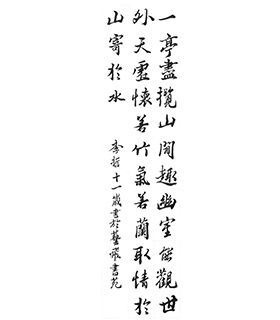 一亭盡攬山間趣幽室能觀世
外天虛懷若竹氣若蘭取情於
山寄於水
李哲十一歲書於藝璨書苑